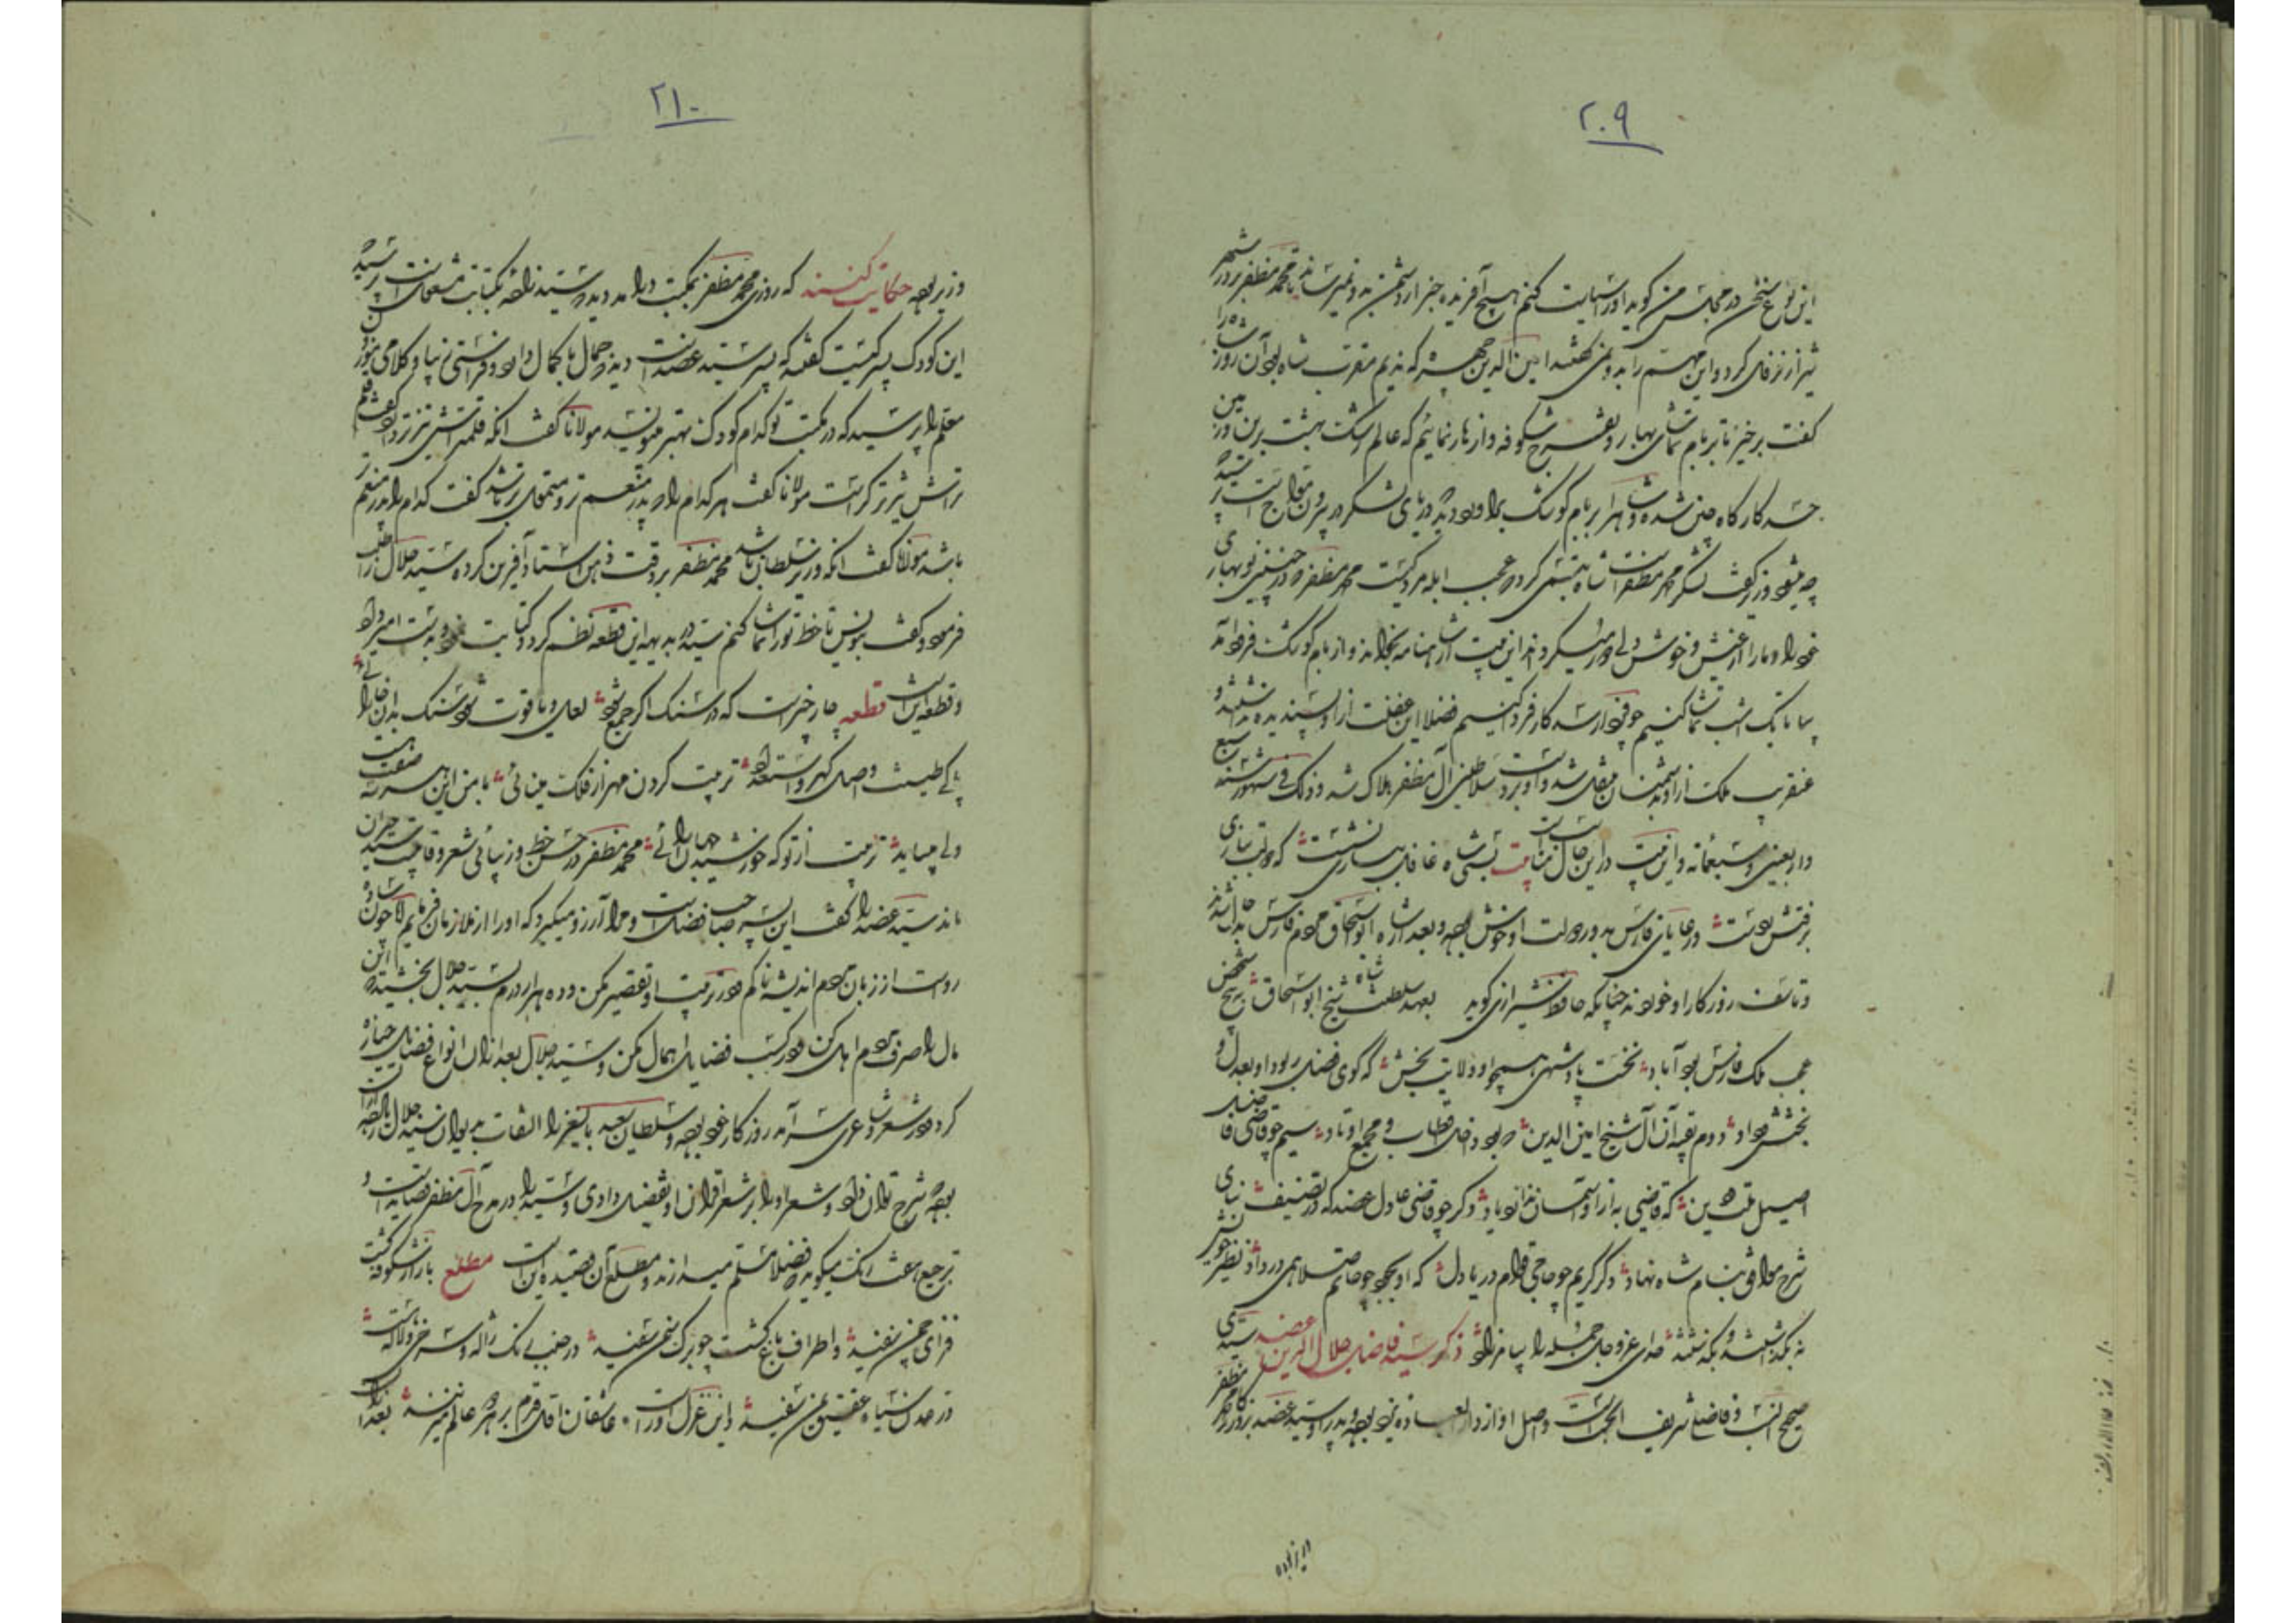 ۲۰۹
این نوع سخن در مجلس من گوید او را سیاست کنم هیچ آفریده خبر از دشمن بدو نمیرسانید تا محمد مظفر بر در شهر
شیراز نزول کرد و این مهم را بدو نمی گفتند امین الدین جهرمی که ندیم مقرب شاه بود آن روز شاه را
گفت برخیز تا بر بام تماشای بهار و تفرج شکوفه و ازهار نمائیم که عالم رشک بهشت برین و زمین
کارگاه چین شده و شاه را بر بام کوشک برآورد دید که دریای لشکر در بیرون مواج است پرسید که
چه میشود وزیر گفت لشکر محمد مظفر است شاه تبسمی کرد که عجب ابله مردکیست محمد مظفر که در چنین نوبهاری
خود را و ما را از عیش و خوش دلی دور میگرداند این بیت از شاهنامه بخواند و از بام کوشک فرود آمد
بیا تا یک امشب تماشا کنیم چو فردا رسد کار فردا کنیم فضلا این غفلت را از او پسندیده نداشتند و
عنقریب ملک از او به دشمنان منتقل شد و او بر دست سلاطین آل مظفر هلاک شد و ذلک فی شهور سنه سبع
و اربعین و سبعمائه و این بیت در این حال مناسبت است بیت بسی شاه غافل ببازی نشست که دولت ببازی
برفتش ز دست و رعایای فارس به دور دولت او خوش بوده و بعد از شاه ابواسحاق مردم فارس
و تاسف روزگار او خوردند چنانکه حافظ شیرازی گوید بعهد سلطنت شاه شیخ ابواسحاق به پنج شخص
عجب ملک فارس بود آباد نخست پادشهی همچو او ولایت بخش که گوی فضل ربود او بعدل و
بخشش و داد دوم بقیه آن آل شیخ امین الدین که بود داخل اقطاب و مجمع اوتاد سیم چو قاضی فاضل
اصیل ملت و دین که قاضی به از او آسمان ندارد یاد دگر چو قاضی عادل عضد که در تصنیف بنای
شرح مواقف بنام شاه نهاد دگر کریم چو حاجی قوام دریادل که او بجود چو حاتم صلا همی در داد نظیر خویش
نه بگذاشتند و بگذشتند خدای عز و جل جمله را بیامرزاد ذکر سید فاضل جلال الدین عضد سیدی
صحیح النسب و فاضلی شریف الحسب است و اصل او از دارالعباده یزد بوده و پدر او سید عضد بروزگار محمد مظفر
۲۱۰
وزیر بوده حکایت کنند که روزی محمد مظفر بمکتب درآمد دید که سید زاده بکتابت مشغول است پرسید که
این کودک پسر کیست گفتند که پسر سید عضد است دید که جمال با کمال دارد و فراستی زیبا و کلامی موزون
معلم را پرسید که در مکتب تو کدام کودک بهتر مینویسد مولانا گفت آنکه قلمتراش تیزتر دارد گفت قلم
تراش تیزتر کراست مولانا گفت هر کدام را که پدر منعم تر و متمول تر باشد گفت کدام را پدر منعم تر
باشد مولانا گفت آنکه وزیر سلطان باشد محمد مظفر بر دقت ذهن استاد آفرین کرده سید جلال را طلب
فرمود و گفت بنویس تا خط تو را تماشا کنم سید در بدیهه این قطعه نظم کرد و کتابت نمود و بدست امیر داد
و قطعه این است قطعه چار چیز است که در سنگ اگر جمع شود لعل و یاقوت شود سنگ بدان خارائی
پاکی طینت و اصل گهر و استعداد تربیت کردن مهر از فلک مینائی با من این هر سه صفت هست
ولی میباید تربیت از تو که خورشید جهان آرائی محمد مظفر در حسن خط و زیبائی شعر و قابلیت سید حیران
ماند سید عضد را گفت این پسر صاحب فضل است و مرا آرزو میگیرد که او را از ملازمان فرمایم لا چون ساده
روست از زبان مردم اندیشه ناکم در تربیت او تقصیر مکن و ده هزار درم بسید جلال بخشید که این
مال را صرف مردم اهل کن و در کسب فضایل اهمال مکن و سید جلال بعد از آن انواع فضایل حیازه
کرد و در شعر و شاعری سرآمد روزگار خود بود و سلطان سعید بایسنغر را التفات بدیوان سید جلال از آن
بود و شعر او را بر شعر اقران او تفضیل دادی و سید را در مدح آل مظفر قصاید است و
ترجیعات نیکو میگوید و فضلا مسلم میدارند و مطلع آن قصیده این است مطلع باز از شکوفه گشت
فزای چمن سفید و اطراف باغ گشت چو برگ سمن سفید در جنب لاله ژاله و سرخی لاله هست
در عدن سیاه عقیق یمن سفید و این غزل او راست عاشقان اول قدم بر هر دو عالم میزنند بعد از آن